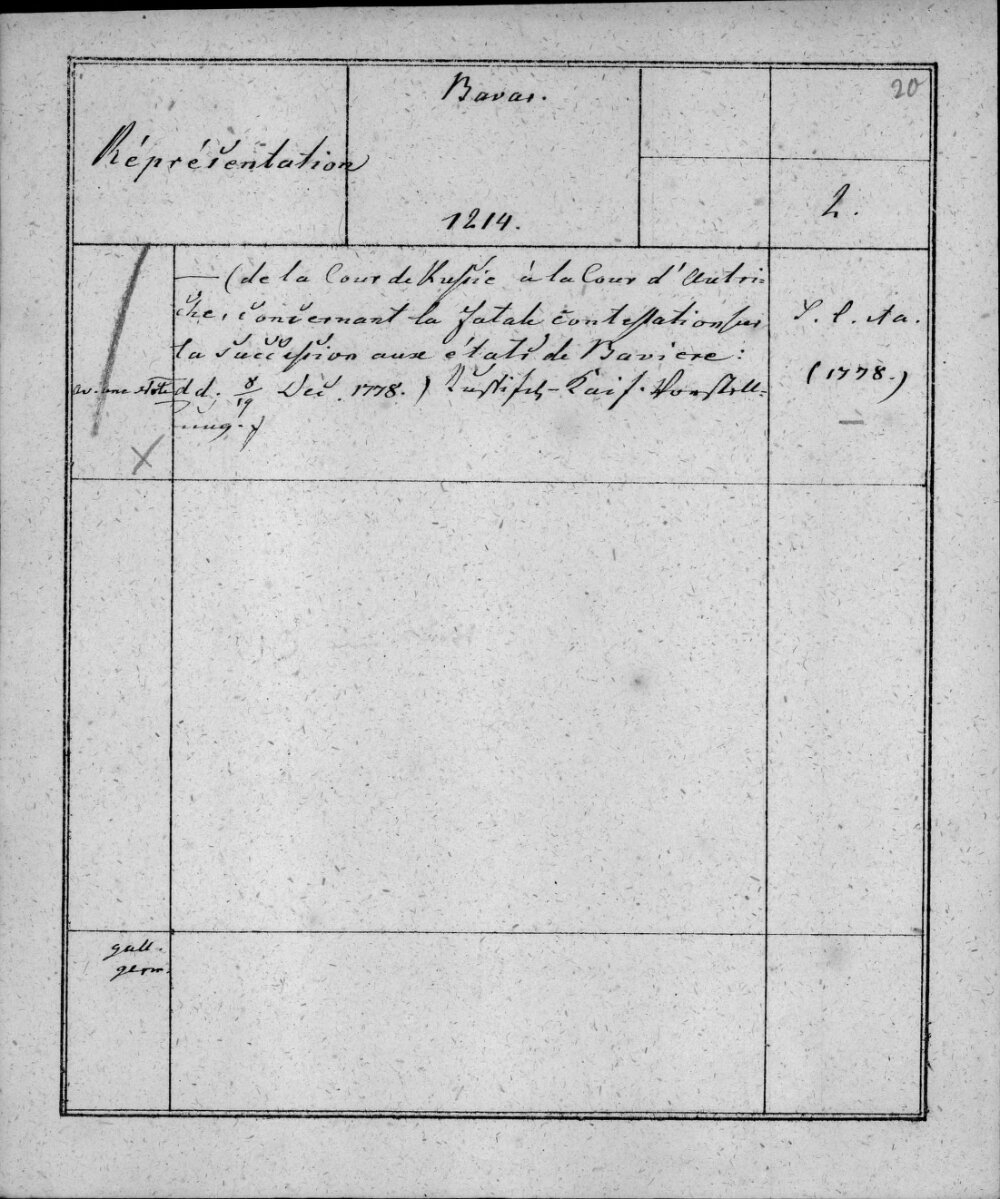 Bavar.
20
Répréšentation
1214.
2.
— (de la Cour de Rußie à la Cour d'Autri-
che, concernant la fatale contestation sur
la succeßion aux états de Baviere:
d d. 8/19 Dec. 1778.) Rußisch-Kais. Vorstell-
ung.)
S. l. Aa.
(1778.)
—
gall.
germ.